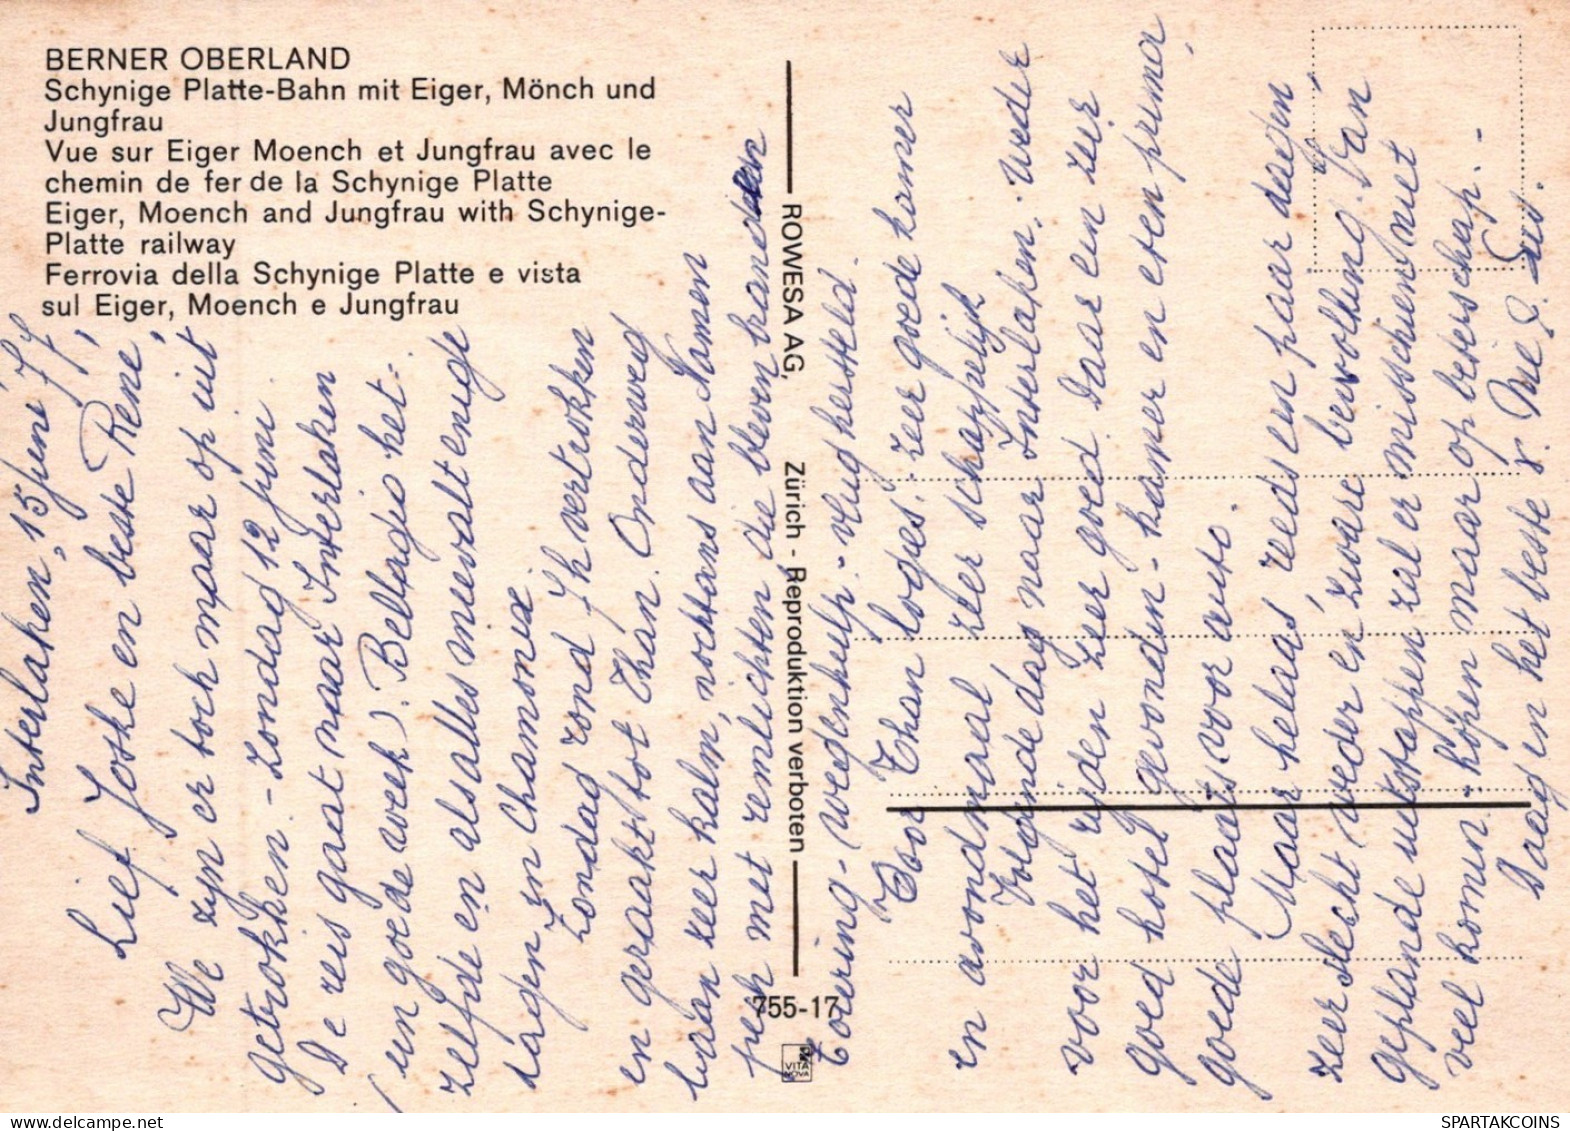 BERNER OBERLAND
Schynige Platte-Bahn mit Eiger, Mönch und
Jungfrau
Vue sur Eiger Moench et Jungfrau avec le
chemin de fer de la Schynige Platte
Eiger, Moench and Jungfrau with Schynige-
Platte railway
Ferrovia della Schynige Platte e vista
sul Eiger, Moench e Jungfrau
ROWESA AG, Zürich - Reproduktion verboten
755-17
VITA
NOVA
Interlaken, 15 juni '77,
Lief Joske en beste René,
We zijn er toch maar op uit
getrokken. - Zondag 12 juni
De reis gaat naar Interlaken
(un goede week). Bellagio het-
zelfde en als alles meevalt enige
dagen in Chamonix.
Zondag rond 7h vertrokken
en geraakt tot Than. Onderweg
baan zeer kalm, nochtans aan Namen
pech met remlichten die bleven branden
Toering - wegenhulp - vlug hersteld.
Voor Than logies: zeer goede kamer
en avondmaal zeer schappelijk
Volgende dag naar Interlaken. Weder
voor het rijden zeer goed. Daar een zeer
goed hotel gevonden - kamer en eten prima,
goede plaats voor auto.
Maar helaas reeds een paar dagen
zeer slecht weder en zware bewolking. Van
geplande uitstappen zal er misschien niet
veel komen - hopen maar op beterschap. -
Daag en het beste v. Me &
SPARTAKCOINS